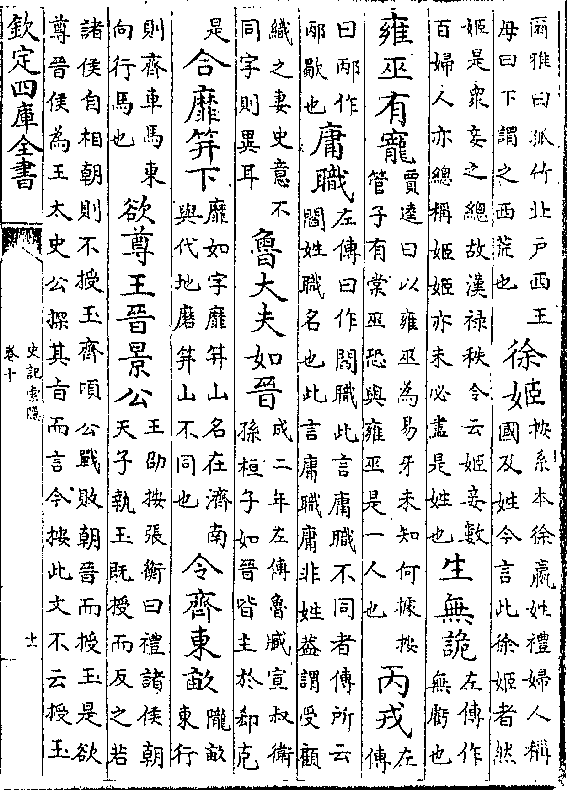 爾雅曰孤竹北戶西王
母曰下謂之西荒也
徐姬
按系本徐嬴姓禮婦人稱
國及姓今言此徐姬者然
姬是衆妾之總故漢祿秩令云姬妾數
百婦人亦總稱姬姬亦未必盡是姓也
生無詭
左傳作
無虧也
雍巫有寵
賈逵曰以雍巫為易牙未知何據按
管子有棠巫恐與雍巫是一人也
丙戎
左
傳
曰邴作
邴歜也
庸職
左傳曰作閻職此言庸職不同者傳所云
閻姓職名也此言庸職庸非姓蓋謂受顧
織之妻史意不
同字則異耳
魯大夫如晉
成二年左傳魯臧宣叔衛
孫桓子如晉皆主於郤克
是
合靡笄下
靡如字靡笄山名在濟南
與代地磨笄山不同也
令齊東畝
隴畝
東行
則齊車馬東
向行馬也
欲尊王晉景公
王劭按張衡曰禮諸侯朝
天子執玉既授而反之若
諸侯自相朝則不授玉齊頃公戰敗朝晉而授玉是欲
尊晉侯為王太史公探其㫖而言今按此文不云授玉
欽定四庫全書
史記索隱
卷十
十一